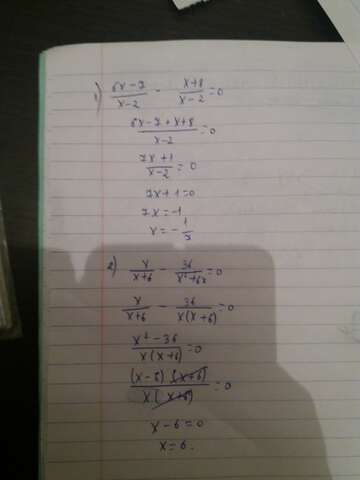 1) (6x-7)/(x-2) - (x+8)/(x-2) = 0
(6x-7+x+8)/(x-2) = 0
(7x+1)/(x-2) = 0
7x+1=0
7x=-1
x=-1/7
2) x/(x+6) - 36/(x²+6x) = 0
x/(x+6) - 36/(x(x+6)) = 0
(x²-36)/(x(x+6)) = 0
((x-6)(x+6))/(x(x+6)) = 0
x-6=0
x=6.